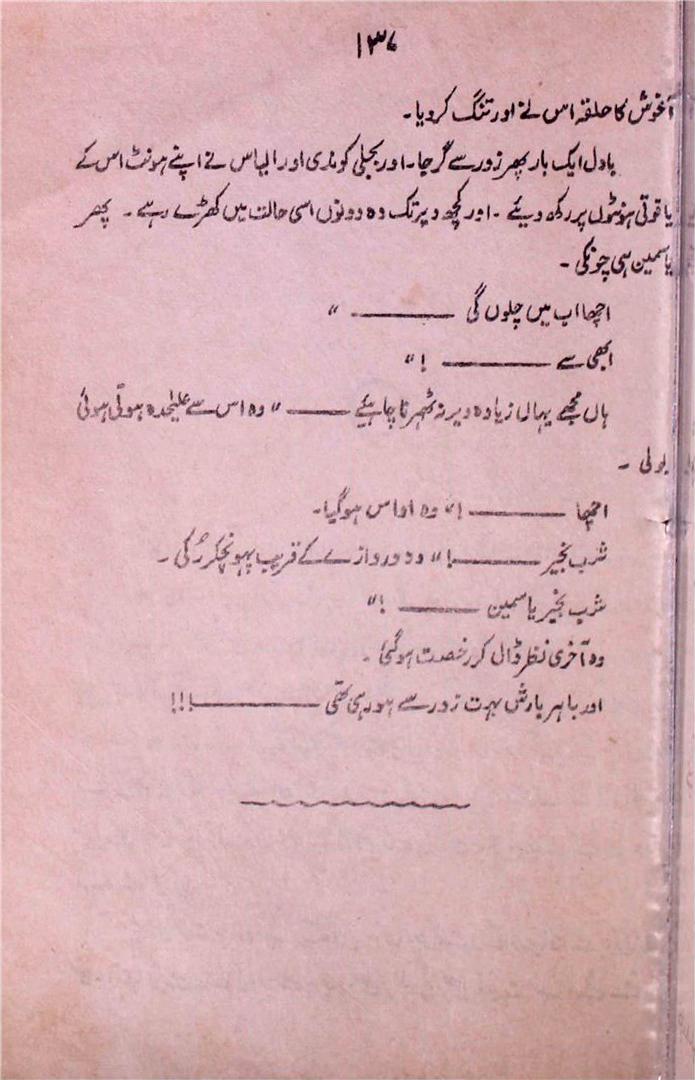 ۱۳۷
آغوش کا حلقہ اس نے اور تنگ کر دیا۔
بادل ایک بار پھر زور سے گرجا۔ اور بجلی کوندی اور الیاس نے اپنے ہونٹ اس کے
یاقوتی ہونٹوں پر رکھ دیئے ۔ اور کچھ دیر تک وہ دونوں اسی حالت میں کھڑے رہے ۔ پھر
یاسمین ہی چونکی ۔
اچھا اب میں چلوں گی ——— "
ابھی سے ——— !"
ہاں مجھے یہاں زیادہ دیر نہ ٹھہرنا چاہیئے ——— " وہ اس سے علیٰحدہ ہوتی ہوئی
بولی ۔
اچھا ——— !" وہ اداس ہو گیا۔
شب بخیر ——— !" وہ دروازے کے قریب پہونچکر رُکی ۔
شب بخیر یاسمین ——— !"
وہ آخری نظر ڈال کر رخصت ہو گئی ۔
اور باہر بارش بہت زور سے ہو رہی تھی ———!!!